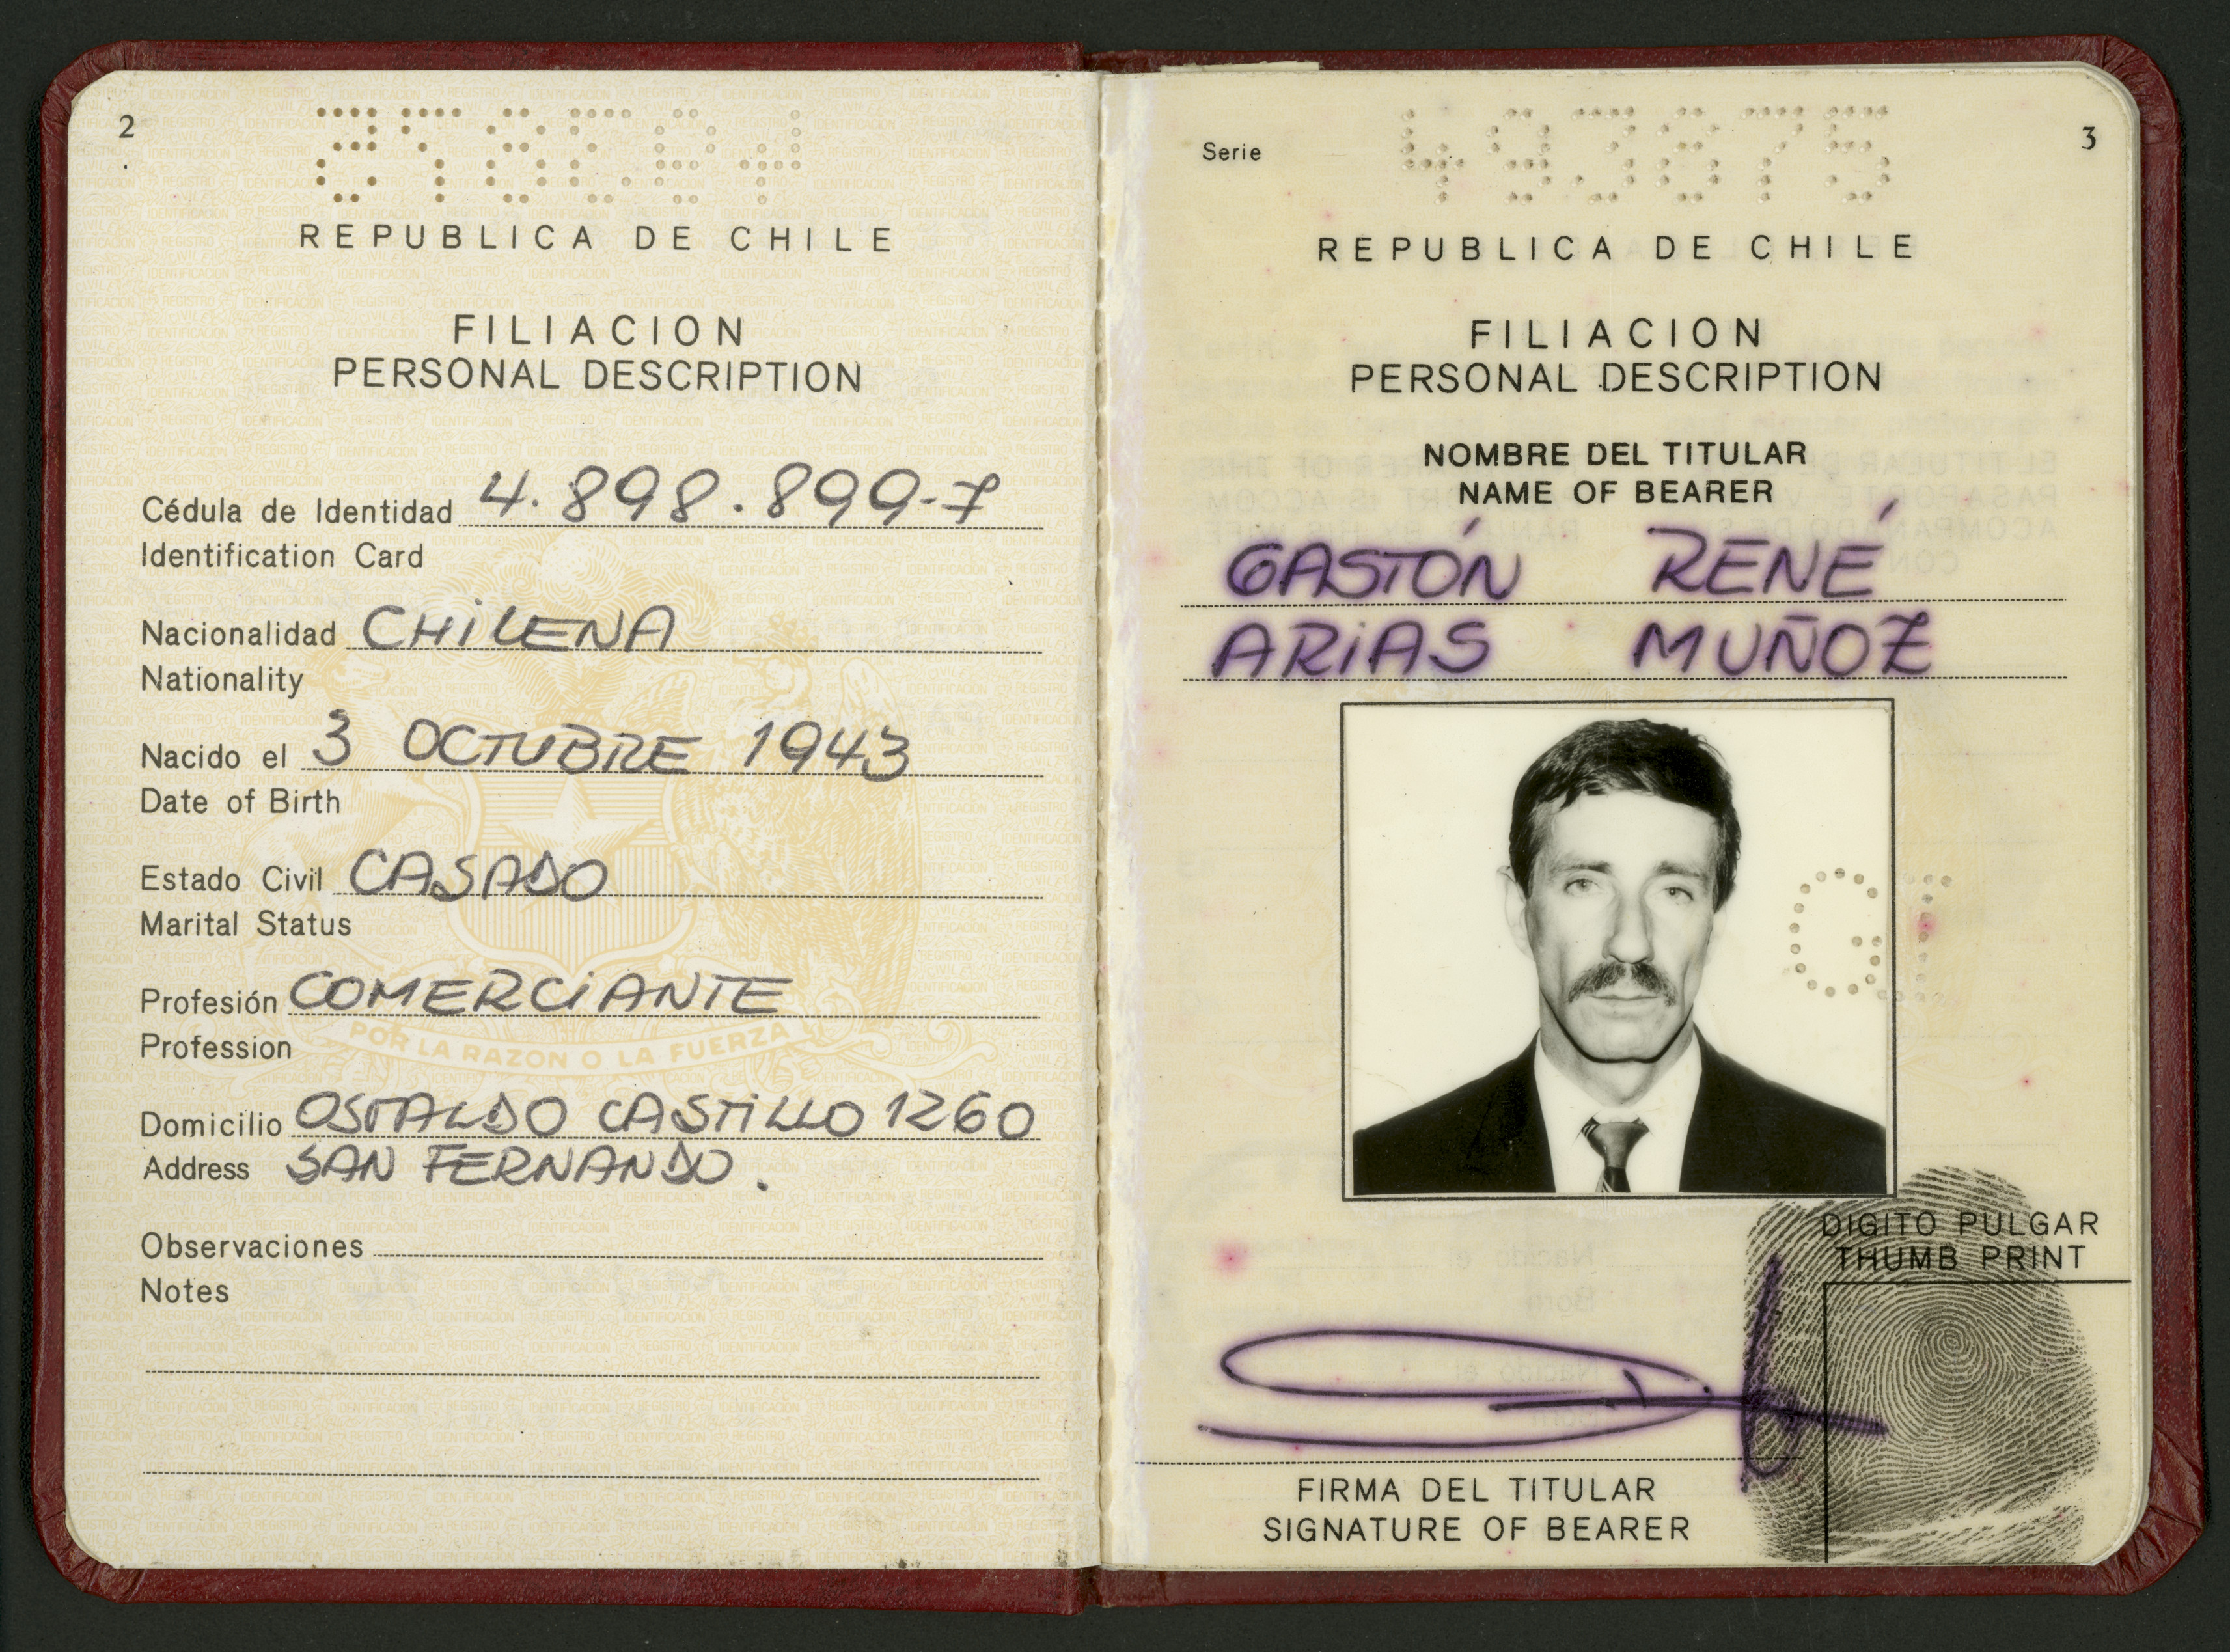 2
REPUBLICA DE CHILE
FILIACION
PERSONAL DESCRIPTION
Cédula de Identidad 4.898.899-7
Identification Card
Nacionalidad CHILENA
Nationality
Nacido el 3 OCTUBRE 1943
Date of Birth
Estado Civil CASADO
Marital Status
Profesión COMERCIANTE
Profession
POR LA RAZON O LA FUERZA
Domicilio OSVALDO CASTILLO 1260
Address SAN FERNANDO.
Observaciones
Notes
Serie 493675
3
REPUBLICA DE CHILE
FILIACION
PERSONAL DESCRIPTION
NOMBRE DEL TITULAR
NAME OF BEARER
GASTÓN RENÉ
ARIAS MUÑOZ
DIGITO PULGAR
THUMB PRINT
FIRMA DEL TITULAR
SIGNATURE OF BEARER